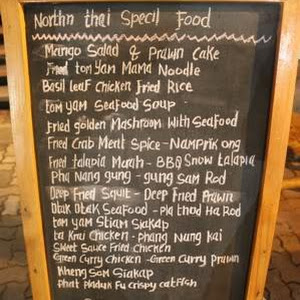 Northn thai Specil Food
Mango Salad & Prawn Cake
Fried tom Yam Mama Noodle
Basil leaf Chicken Fried Rice
tom yam Seafood Soup
Fried golden Mashroom With Seafood
Fried Crab Meat Spice - Namprik ong
Fried talapia Marah - BBQ Snow talapia
Pha Nang gung - gung Sam Rod
Deep Fried Squit - Deep Fried Prawn
Otak Otak SeaFood - Pla thod Ha Rod
tom yam Stiam Siakap
ta Krai Chicken - phang Nung kai
Sweet Sauce Fried Chicken
Green Curry Chicken - Green Curry Prawn
Kheng Sam Siakap
Phat Phaduk Fu crispy catfish